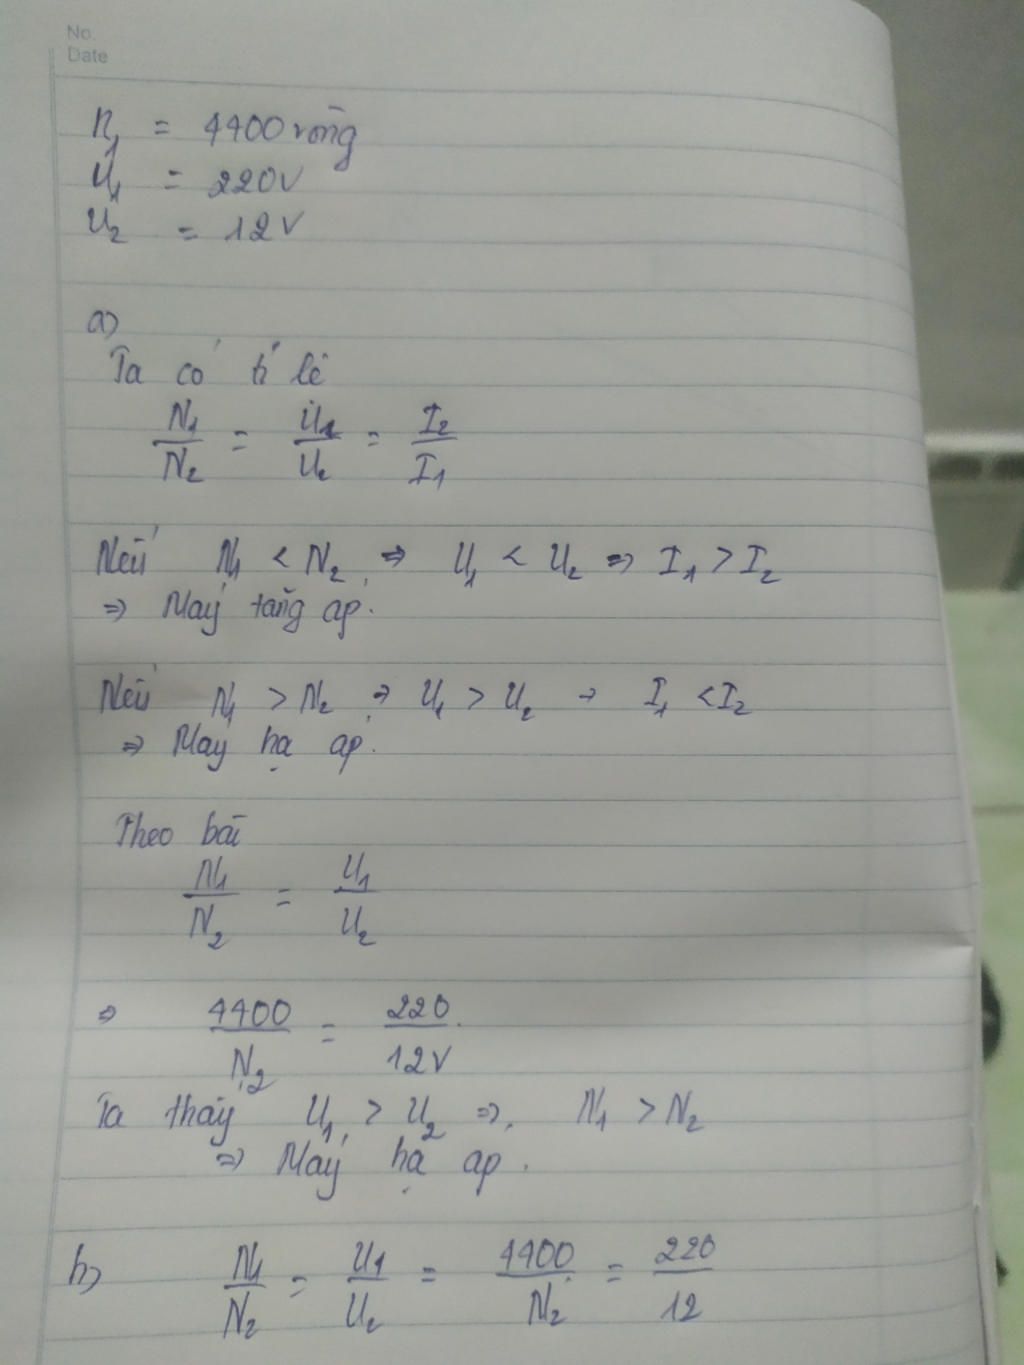 No.
Date
n₁ = 4400 vòng
U₁ = 220V
U₂ = 12V
a)
Ta có tỉ lệ
N₁/N₂ = U₁/U₂ = I₂/I₁
Nếu N₁ < N₂ ⇒ U₁ < U₂ ⇒ I₁ > I₂
⇒ Máy tăng áp.
Nếu N₁ > N₂ ⇒ U₁ > U₂ → I₁ < I₂
⇒ Máy hạ áp.
Theo bài
N₁/N₂ = U₁/U₂
⇒ 4400/N₂ = 220/12V
Ta thấy U₁ > U₂ ⇒ N₁ > N₂
⇒ Máy hạ áp.
b) N₁/N₂ = U₁/U₂ = 4400/N₂ = 220/12